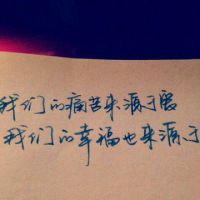 我们的痛苦来源于爱
我们的幸福也来源于